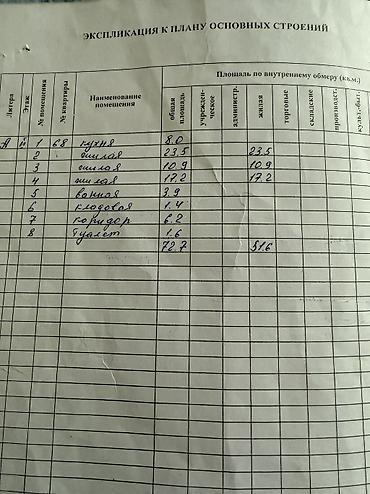 ЭКСПЛИКАЦИЯ К ПЛАНУ ОСНОВНЫХ СТРОЕНИЙ
Литера Этаж № помещения № квартиры Наименование помещения Площадь по внутреннему обмеру (кв.м.)
общая площадь учрежден-ческое администр. жилая торговые складские производст. культ.-быт.
А 1 68 кухня 8.0
2 жилая 23.5 23.5
3 жилая 10.9 10.9
4 жилая 17.2 17.2
5 ванная 3.9
6 кладовая 1.4
7 коридор 6.2
8 туалет 1.6
72.7 51.6